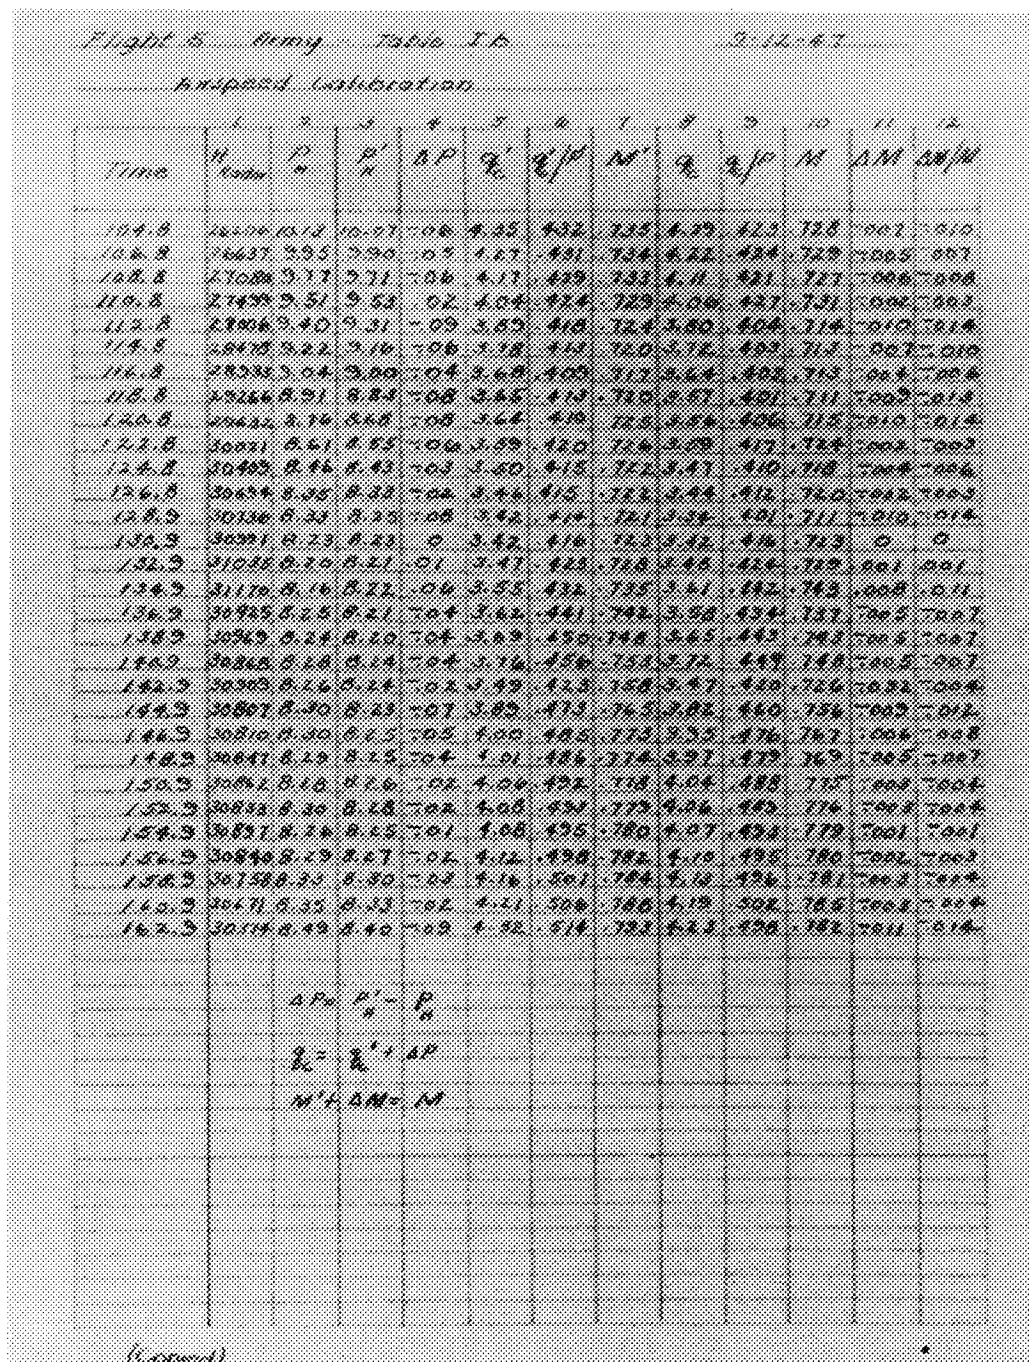 Flight 5 Army Table I b 9-12-47
Airspeed Calibration
1 2 3 4 5 6 7 8 9 10 11 12
Time H P H P' H ΔP q'c q'c/p' M' qc qc/p M ΔM ΔM/M
104.8 10.12 10.07 -06 4.35 .432 .735 4.29 .423 .728 -007 -010
106.8 26637 9.95 9.90 -05 4.27 .431 .734 4.22 .424 .729 -005 -007
108.8 27080 9.77 9.71 -06 4.17 .429 .733 4.11 .421 .727 -006 -008
110.8 27499 9.51 9.53 .02 4.04 .424 .729 4.06 .427 .731 .002 -003
112.8 28006 9.40 9.31 -09 3.89 .418 .724 3.80 .404 .714 -010 -014
114.8 28478 9.22 9.16 -06 3.78 .413 .720 3.72 .403 .713 -007 -010
116.8 9.04 9.00 -04 3.68 .409 .717 3.64 .403 .713 -004 -006
118.8 29266 8.91 8.83 -08 3.65 .413 .720 3.57 .401 .711 -009 -013
120.8 29632 8.76 8.68 -08 3.64 .419 .725 3.56 .406 .715 -010 -014
122.8 30021 8.61 8.55 -06 3.59 .420 .726 3.59 .417 .724 -002 -003
124.8 30409 8.46 8.43 -03 3.50 .415 .722 3.47 .410 .718 -004 -006
126.8 30694 8.35 8.33 -02 3.46 .415 .722 3.44 .412 .720 -002 -003
128.9 30736 8.33 8.25 -08 3.42 .414 .721 3.34 .401 .711 -010 -014
130.9 30991 8.23 8.23 0 3.42 .416 .723 3.42 .416 .723 0 0
132.9 31035 8.20 8.21 .01 3.47 .423 .728 3.48 .424 .729 .001 .001
134.9 31170 8.16 8.22 .06 3.55 .432 .735 3.61 .442 .743 .008 .011
136.9 30925 8.25 8.21 -04 3.62 .441 .742 3.58 .434 .737 -005 -007
138.9 30969 8.24 8.20 -04 3.69 .450 .748 3.65 .443 .743 -005 -007
140.9 30868 8.28 8.24 -04 3.76 .456 .753 3.72 .449 .748 -005 -007
142.9 30909 8.26 8.24 -02 3.49 .423 .758 3.47 .420 .726 -032 -004
144.9 30807 8.30 8.23 -07 3.89 .473 .765 3.82 .460 .756 -009 -012
146.9 30810 8.30 8.25 -05 4.00 .485 .773 3.95 .476 .767 -006 -008
148.9 30847 8.29 8.25 -04 4.01 .486 .774 3.97 .479 .769 -005 -007
150.9 30862 8.28 8.26 -02 4.06 .492 .778 4.04 .488 .775 -003 -004
152.9 30833 8.30 8.28 -02 4.08 .493 .779 4.06 .489 .776 -003 -004
154.9 30897 8.26 8.25 -01 4.08 .495 .780 4.07 .493 .779 -001 -001
156.9 30840 8.29 8.27 -02 4.12 .498 .782 4.10 .495 .780 -002 -003
158.9 30758 8.33 8.30 -03 4.16 .501 .784 4.13 .496 .781 -003 -004
160.9 30671 8.35 8.33 -02 4.21 .506 .788 4.19 .502 .785 -003 -004
162.9 30114 8.49 8.40 -09 4.32 .514 .793 4.23 .498 .782 -011 -014
ΔP = P'H - PH
qc = q'c + ΔP
M' + ΔM = M